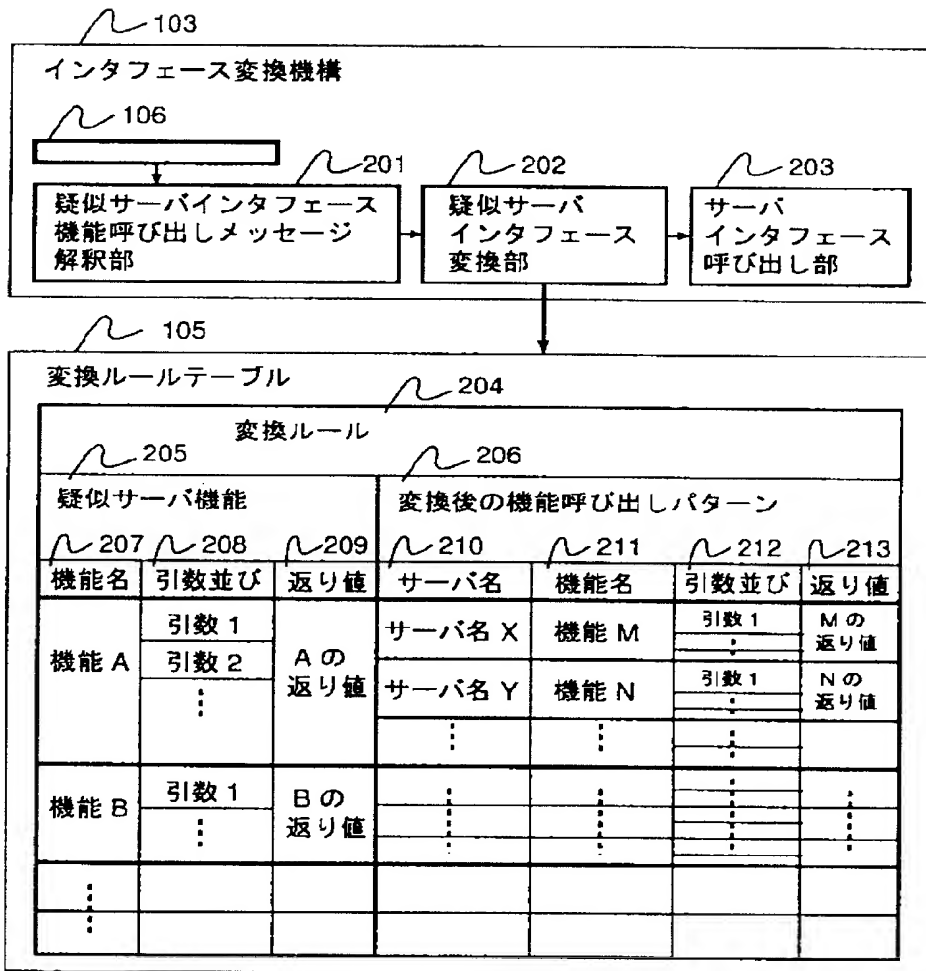 103
インタフェース変換機構
106
201
202
203
疑似サーバインタフェース
機能呼び出しメッセージ
解釈部
疑似サーバ
インタフェース
変換部
サーバ
インタフェース
呼び出し部
105
変換ルールテーブル
204
変換ルール
205
206
疑似サーバ機能
変換後の機能呼び出しパターン
207
208
209
210
211
212
213
機能名
引数並び
返り値
サーバ名
機能名
引数並び
返り値
機能 A
引数 1
引数 2
A の
返り値
サーバ名 X
機能 M
引数 1
M の
返り値
サーバ名 Y
機能 N
引数 1
N の
返り値
機能 B
引数 1
B の
返り値